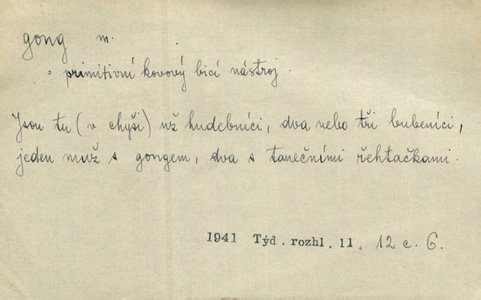 gong m.
primitivní kovový bicí nástroj.
Jsou tu (v chýši) už hudebníci, dva nebo tři bubeníci,
jeden muž s gongem, dva s tanečními řehtačkami.
1941 Týd. rozhl. 11. 12 c. 6.